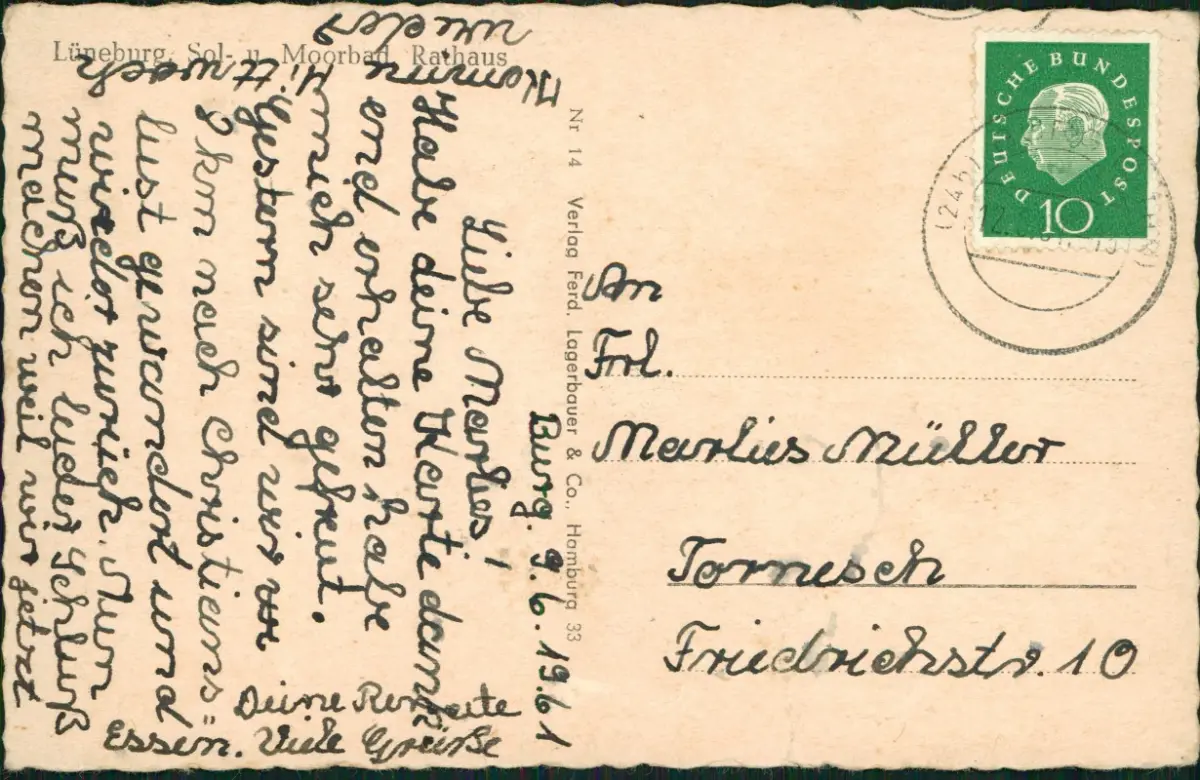 Lüneburg, Sol- u. Moorbad, Rathaus
Nr 14 Verlag Ferd. Lagerbauer & Co., Hamburg 33
DEUTSCHE BUNDESPOST
10
Burg. 9.6.1961
Liebe Marlies!
Habe deine Karte dank
end erhalten habe
mich sehr gefreut.
Gestern sind wir
8 km nach Christians=
lust gewandert und
wieder zurück. Nun
muß ich leider Schluß
machen weil wir jetzt
Essen. Viele Grüße
Deine Renate
Komme
Mittwoch
wieder
An
Frl.
Marlies Müller
Tornesch
Friedrichstr. 10